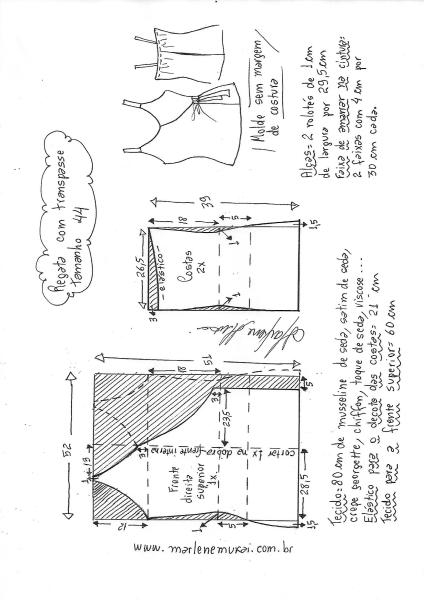 Regata com transpasse
tamanho 44
Molde sem margem
de costura
Alças= 2 rolotés de 1cm
de largura por 29,5cm
Faixa de amarrar na cintura:
2 faixas com 4cm por
30cm cada.
39
18
5
26,5
3
elástico
Costas
2x
1
1
1,5
52
51
18
13
1
3
3
12
23,5
5
Frente
direita
superior
1x
cortar 1x na dobra frente interna
28,5
1
5
1,5
www.marlenemukai.com.br
Tecido: 80cm de musseline de seda, satim de seda,
crepe georgette, chiffon, toque de seda, viscose...
Elástico para o decote das costas= 21 cm
Tecido para a frente superior= 60cm